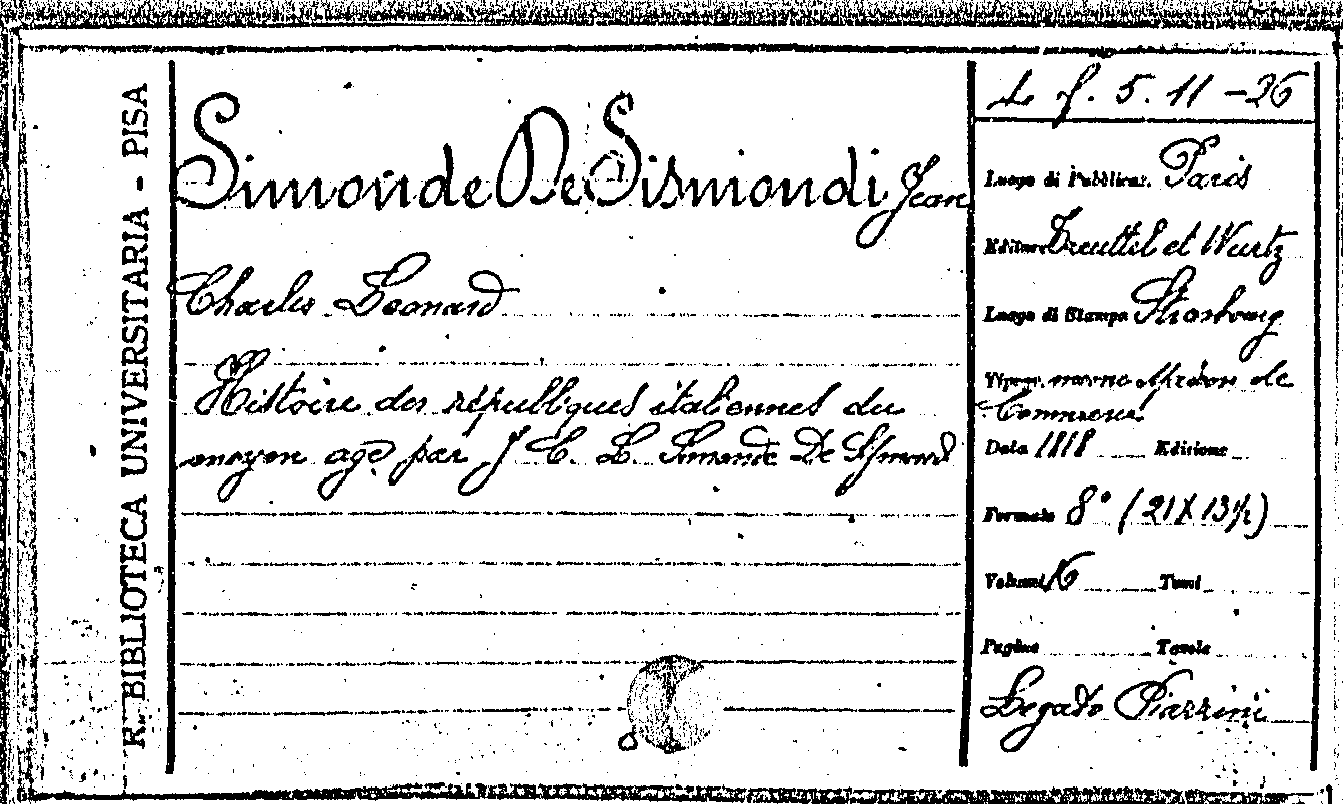 R. BIBLIOTECA UNIVERSITARIA - PISA
Simonde De Sismondi Jean
Charles Leonard
Histoire des républiques italiennes du
moyen age par J C. L. Simonde De Sismondi
L f. 5. 11 - 26
Luogo di Pubblicaz. Paris
Editore Treuttel et Wurtz
Luogo di Stampa Strasbourg
Tipogr. de
Commerce
Data 1818 Edizione
Formato 8° (21 X 13½)
Volumi 16 Tomi
Pagine Tavole
Legato Piazzini